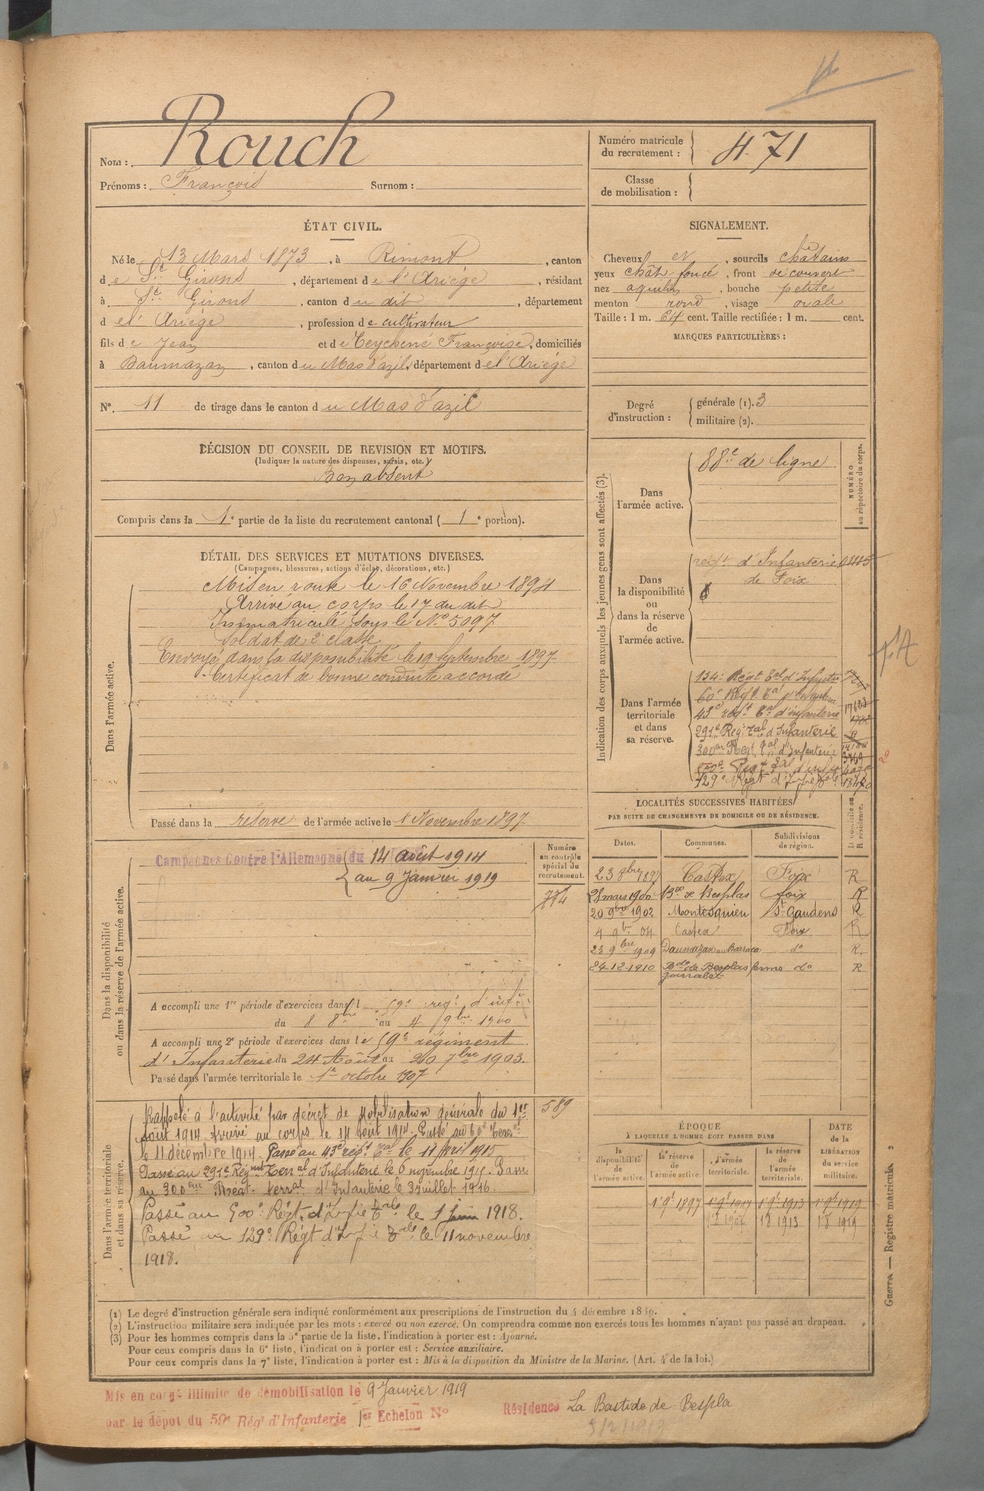 Rouch
Nom :
Prénoms : François Surnom :
Numéro matricule
du recrutement : 471
Classe
de mobilisation :
ÉTAT CIVIL.
Né le 13 Mars 1873, à Rimont, canton
de St Girons, département de l'Ariège, résidant
à St Girons, canton du dit, département
de l'Ariège, profession de cultivateur
fils de Jean et de Teychene Françoise, domiciliés
à Daumazan, canton du Mas d'azil, département de l'Ariège
N° 11 de tirage dans le canton du Mas d'azil
DÉCISION DU CONSEIL DE REVISION ET MOTIFS.
(Indiquer la nature des dispenses, sursis, etc.)
Bon absent
Compris dans la 1e partie de la liste du recrutement cantonal ( 1e portion).
DÉTAIL DES SERVICES ET MUTATIONS DIVERSES.
(Campagnes, blessures, actions d'éclat, décorations, etc.)
Dans l'armée active.
Mis en route le 16 Novembre 1894
Arrivé au corps le 17 du dit
Immatriculé sous le N° 5097
Soldat de 2e classe
Envoyé dans la disponibilité le 19 Septembre 1897
Certificat de bonne conduite accordé
Passé dans la réserve de l'armée active le 1 Novembre 1897
Dans la disponibilité
ou dans la réserve de l'armée active.
Campagnes Contre l'Allemagne du 14 août 1914
au 9 Janvier 1919
Numéro
au contrôle
spécial du
recrutement.
774
A accompli une 1re période d'exercices dans l 59e regt d'infie
du 8 8bre au 4 9bre 1900
A accompli une 2e période d'exercices dans le 59e régiment
d'Infanterie du 24 Août au 20 7bre 1903.
Passé dans l'armée territoriale le 1er octobre 1907
Dans l'armée territoriale
et dans sa réserve.
589
Rappelé à l'activité par décret de Mobilisation générale du 1er
Août 1914. Arrivé au corps le 14 août 1914. Passé au 60e Terral
le 11 décembre 1914. Passé au 43e régt Tal le 11 Avril 1915
Passé au 291e Régiment Terral d'Infanterie le 6 novembre 1915. Passé
au 300ème Régt. Terral d'Infanterie le 3 juillet 1916.
Passé au 500e Régt. d'Infie Tale le 1 Juin 1918.
Passé au 129e Régt d'Infie Tale le 11 novembre
1918.
SIGNALEMENT.
Cheveux et, sourcils châtains
yeux chât. foncé, front découvert
nez aquilin, bouche petite
menton rond, visage ovale
Taille : 1 m. 64 cent. Taille rectifiée : 1 m. cent.
MARQUES PARTICULIÈRES :
Degré
d'instruction :
générale (1). 3
militaire (2).
Indication des corps auxquels les jeunes gens sont affectés (3).
NUMÉRO
au répertoire du corps.
Dans
l'armée active.
88e de ligne
Dans
la disponibilité
ou
dans la réserve
de
l'armée active.
régt. d'Infanterie
de Foix
Dans l'armée
territoriale
et dans
sa réserve.
134e Regt Tal d'Infanterie
60e Regt Tal d'Infanterie
43e régt Tal d'infanterie
291e Reg. Tal d'Infanterie
300e Regt Tal d'Infanterie
500e Regt Tal d'infie
129e Regt d'Infie Tale
LOCALITÉS SUCCESSIVES HABITÉES
PAR SUITE DE CHANGEMENTS DE DOMICILE OU DE RÉSIDENCE.
Dates. Communes. Subdivisions de région.
23 9bre 1897 Castex Foix R
28 mars 1900 Bde de Besplas foix R
20 9bre 1902 Montesquieu St Gaudens R
4 9bre 04 Castex Foix R
23 9bre 1909 Daumazan do R.
24-12-1910 Bde de Besplas ferme do R
ÉPOQUE
À LAQUELLE L'HOMME DOIT PASSER DANS
DATE
de la
LIBÉRATION
du service
militaire.
la disponibilité de l'armée active.
la réserve de l'armée active.
l'armée territoriale.
la réserve de l'armée territoriale.
1 9e 1897 1 9e 1907 1 9e 1913 1 9e 1919
Guerre — Registre matricule. 2
(1) Le degré d'instruction générale sera indiqué conformément aux prescriptions de l'instruction du 4 décembre 1889.
(2) L'instruction militaire sera indiquée par les mots : exercé ou non exercé. On comprendra comme non exercés tous les hommes n'ayant pas passé au drapeau.
(3) Pour les hommes compris dans la 5e partie de la liste, l'indication à porter est : Ajourné.
Pour ceux compris dans la 6e liste, l'indication à porter est : Service auxiliaire.
Pour ceux compris dans la 7e liste, l'indication à porter est : Mis à la disposition du Ministre de la Marine. (Art. 4 de la loi.)
Mis en congé illimité de démobilisation le 9 Janvier 1919
par le dépôt du 59e Régt d'Infanterie 1er Echelon N°
Résidence La Bastide de Bespla